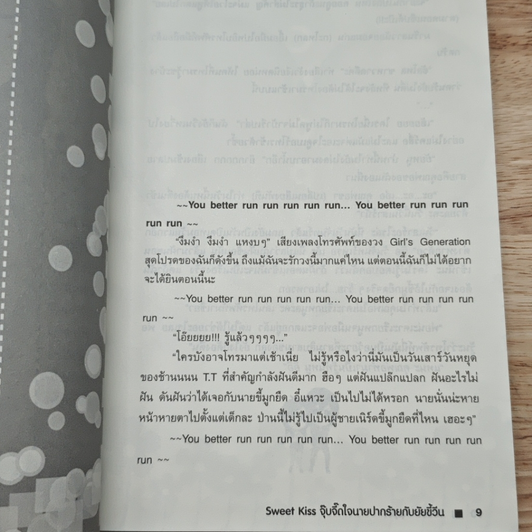 ~~You better run run run run run... You better run run run
run run ~~
"งืมงำ งืมงำ แหงบๆ" เสียงเพลงโทรศัพท์ของวง Girl's Generation
สุดโปรดของฉันก็ดังขึ้น ถึงแม้ฉันจะรักวงนี้มากแค่ไหน แต่ตอนนี้ฉันก็ไม่ได้อยาก
จะได้ยินตอนนี้นะ
~~You better run run run run run... You better run run run run
run ~~
"โอ๊ยยยย!!! รู้แล้วๆๆๆๆ..."
"ใครบังอาจโทรมาแต่เช้าเนี่ย ไม่รู้หรือไงว่านี่มันเป็นวันเสาร์วันหยุด
ของช้านนนน T.T ที่สำคัญกำลังฝันดีมาก ฮือๆ แต่ฝันแปลกแปลก ฝันอะไรไม่
ฝัน ดันฝันว่าได้เจอกับนายขี้มูกยืด อี๋แหวะ เป็นไปไม่ได้หรอก นายนั่นน่ะหาย
หน้าหายตาไปตั้งแต่เด็กละ ป่านนี้ไม่รู้ไปเป็นผู้ชายเนิร์ดขี้มูกยืดที่ไหน เฮอะๆ"
~~You better run run run run run... You better run run run run
run ~~
Sweet Kiss จุ๊บจิ๊กใจนายปากร้ายกับยัยขี้วีน ■ 9